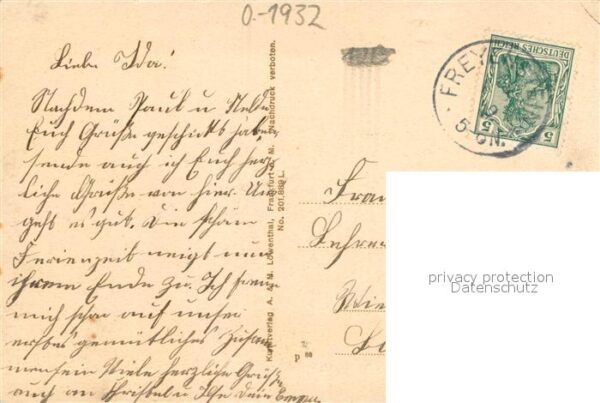 O-1932
Liebe Ida!
Nachdem Paul u
Euch Grüße geschickt haben
sende auch ich Euch herz-
liche Grüße von hier. Uns
geht es gut. Die schöne
Ferienzeit neigt nun
ihrem Ende zu. Ich freue
mich schon auf unser
erstes gemütliches Zusam
mensein Viele herzliche Grüße
auch an
Kunstverlag A. & M. Löwenthal, Frankfurt a. M. Nachdruck verboten.
No. 201,889 L.
P 88
DEUTSCHES REICH
5 5
FREY
5-6N.
Frau
Lehrer
privacy protection
Datenschutz